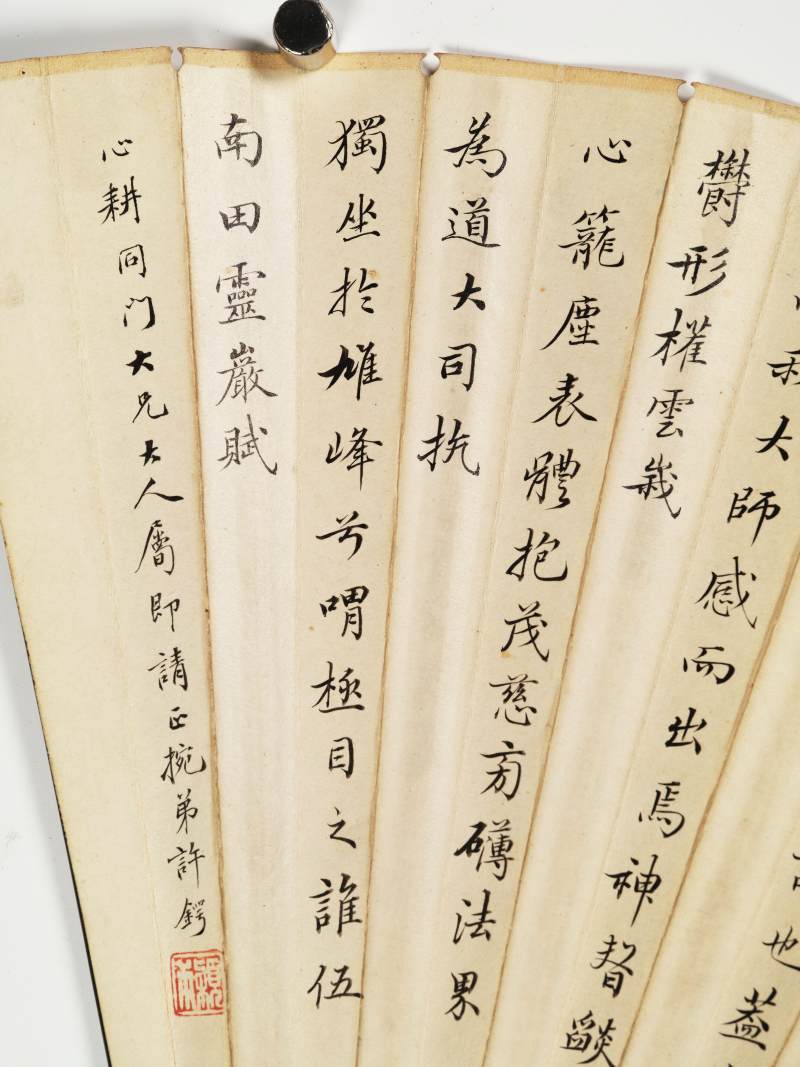 也蓋
大師感而出焉神燄
鬱形權雲峩
心籠塵表體抱茂慈旁礴法界
為道大司执
獨坐於雄峰兮喟極目之誰伍
南田靈巖賦
心耕同門大兄大人屬即請正捥弟許鍔